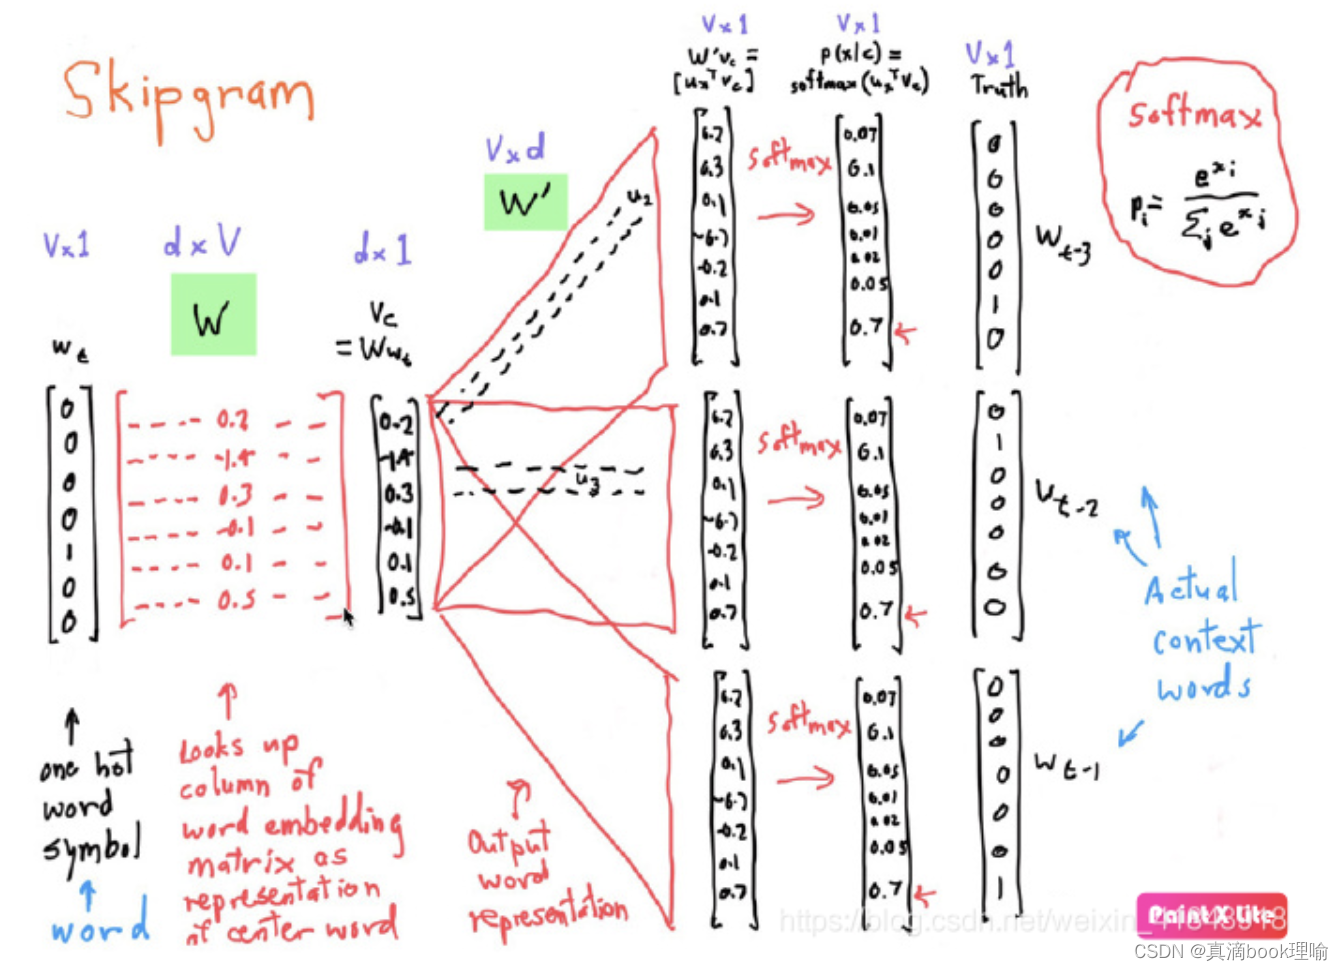 Skipgram
V×1
d×V
W
d×1
V×d
W'
w_t
0
0
0
0
1
0
0
0.2
-1.4
0.3
-0.1
0.1
0.5
v_c
= Ww_t
0.2
-1.4
0.3
-0.1
0.1
0.5
u_2
u_3
V×1
W'v_c =
[u_x^T v_c]
V×1
p(x|c) =
softmax(u_x^T v_c)
V×1
Truth
0.3
0.1
-0.2
0.1
0.7
softmax
0.07
0.1
0.05
0.01
0.02
0.05
0.7
0
0
0
0
0
1
0
w_t-3
0.3
0.1
-0.2
0.1
0.7
softmax
0.07
0.1
0.05
0.01
0.02
0.05
0.7
0
1
0
0
0
0
0
w_t-2
0.3
0.1
-0.2
0.1
0.7
softmax
0.07
0.1
0.05
0.01
0.02
0.05
0.7
0
0
0
0
0
0
1
w_t-1
softmax
p_i = e^x_i / Σ_j e^x_j
Actual
context
words
one hot
word
symbol
word
Looks up
column of
word embedding
matrix as
representation
of center word
Output
word
representation
Paint X Lite
https://blog.csdn.net/weixin_41843918
CSDN @真滴book理喻